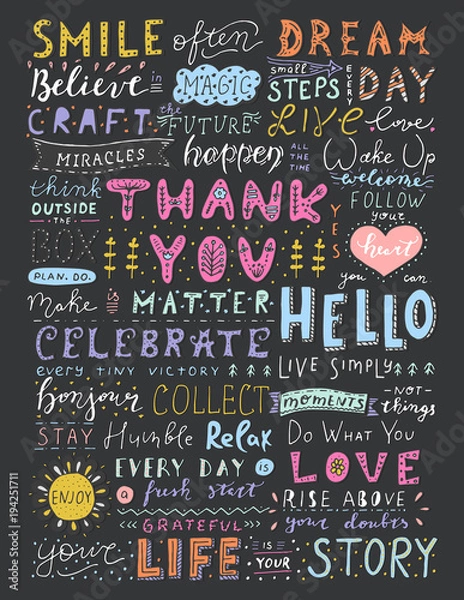 SMILE often DREAM
Believe in MAGIC small STEPS EVERY DAY
CRAFT the FUTURE LIVE love
MIRACLES happen ALL THE TIME Wake Up
welcome
think OUTSIDE THE BOX THANK YOU YES FOLLOW your heart
PLAN. DO. you can
Make IS MATTER HELLO
CELEBRATE
every tiny victory LIVE SIMPLY
bonjour COLLECT MOMENTS -NOT- things
STAY Humble Relax Do What You
LOVE
ENJOY EVERY DAY is
a fresh start RISE ABOVE
GRATEFUL your doubts
your LIFE IS YOUR STORY
Adobe Stock | #194251711